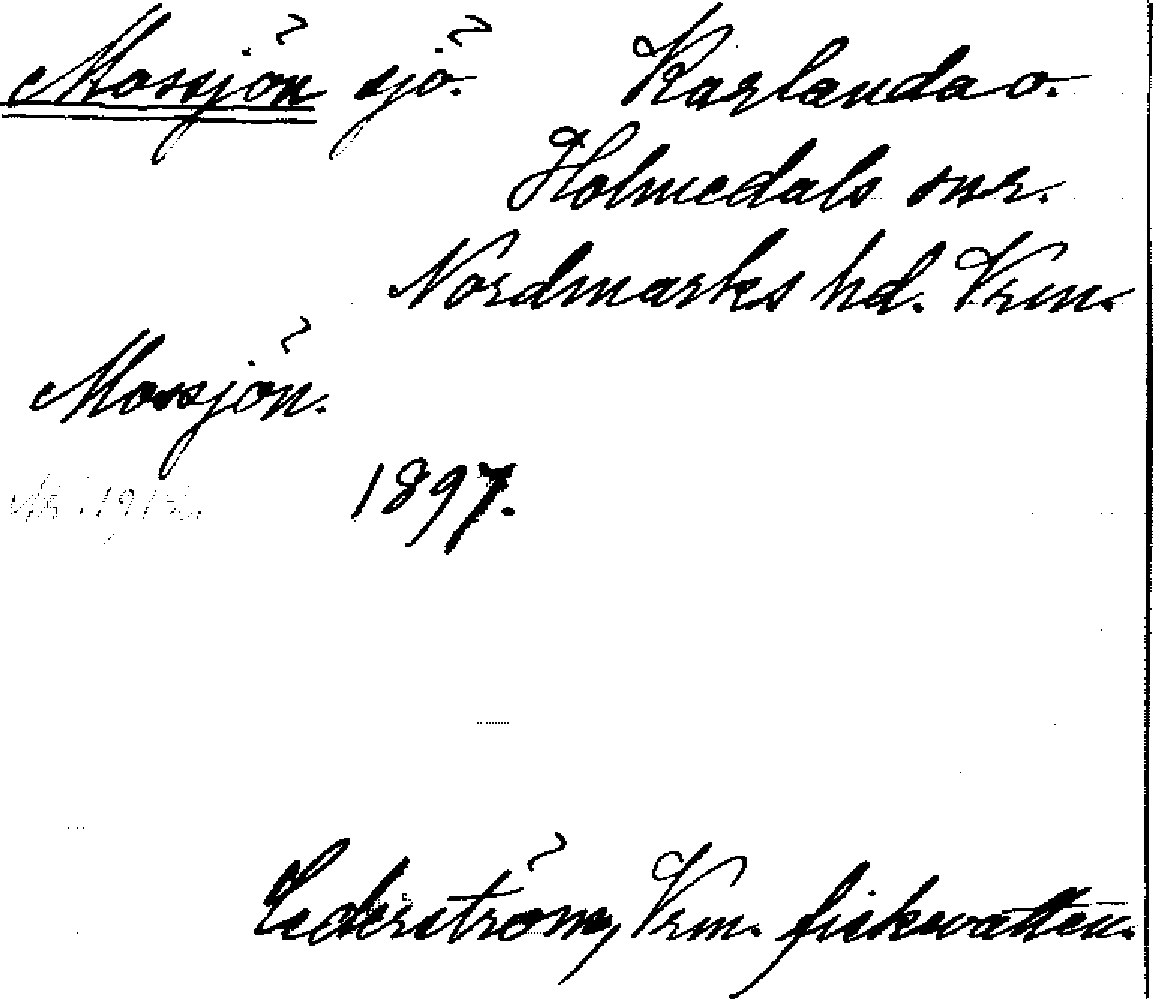 Mossjön sjö. Karlanda o.
Holmedals snr.
Nordmarks hd. Vrm.
Mossjön.
1897.
Cederström, Vrm. fiskevatten.